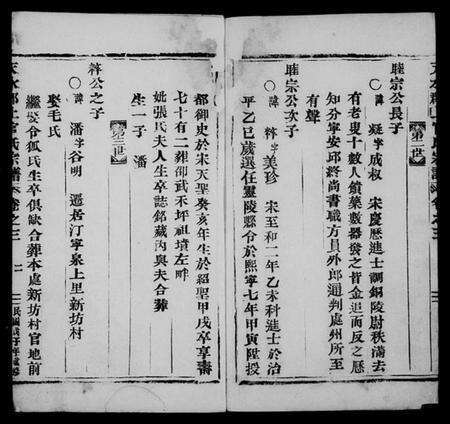 第二世
睦宗公長子
○諱凝字成叔 宋慶曆進士調銅陵尉秩滿去
有老叟十數人饋藥數器發之皆金追而反之歷
知分寧安邱終尚書職方員外郎通判處州所至
有聲
睦宗公次子
○諱粹字美珍 宋至和二年乙未科進士於治
平乙巳歲選任靈陵縣令於熙寧七年甲寅陞授
都御史於宋天聖癸亥年生於紹聖甲戌卒享壽
七十有二葬邵武禾坪祖墳左畔
妣張氏夫人生卒誌銘藏內與夫合葬
生一子 潘
第三世
粹公之子
○諱潘字谷明 遷居汀寧泉上里新坊村
娶毛氏
繼娶令狐氏生卒俱缺合葬本處新坊村官地前
天水郡上官氏宗譜 卷之三